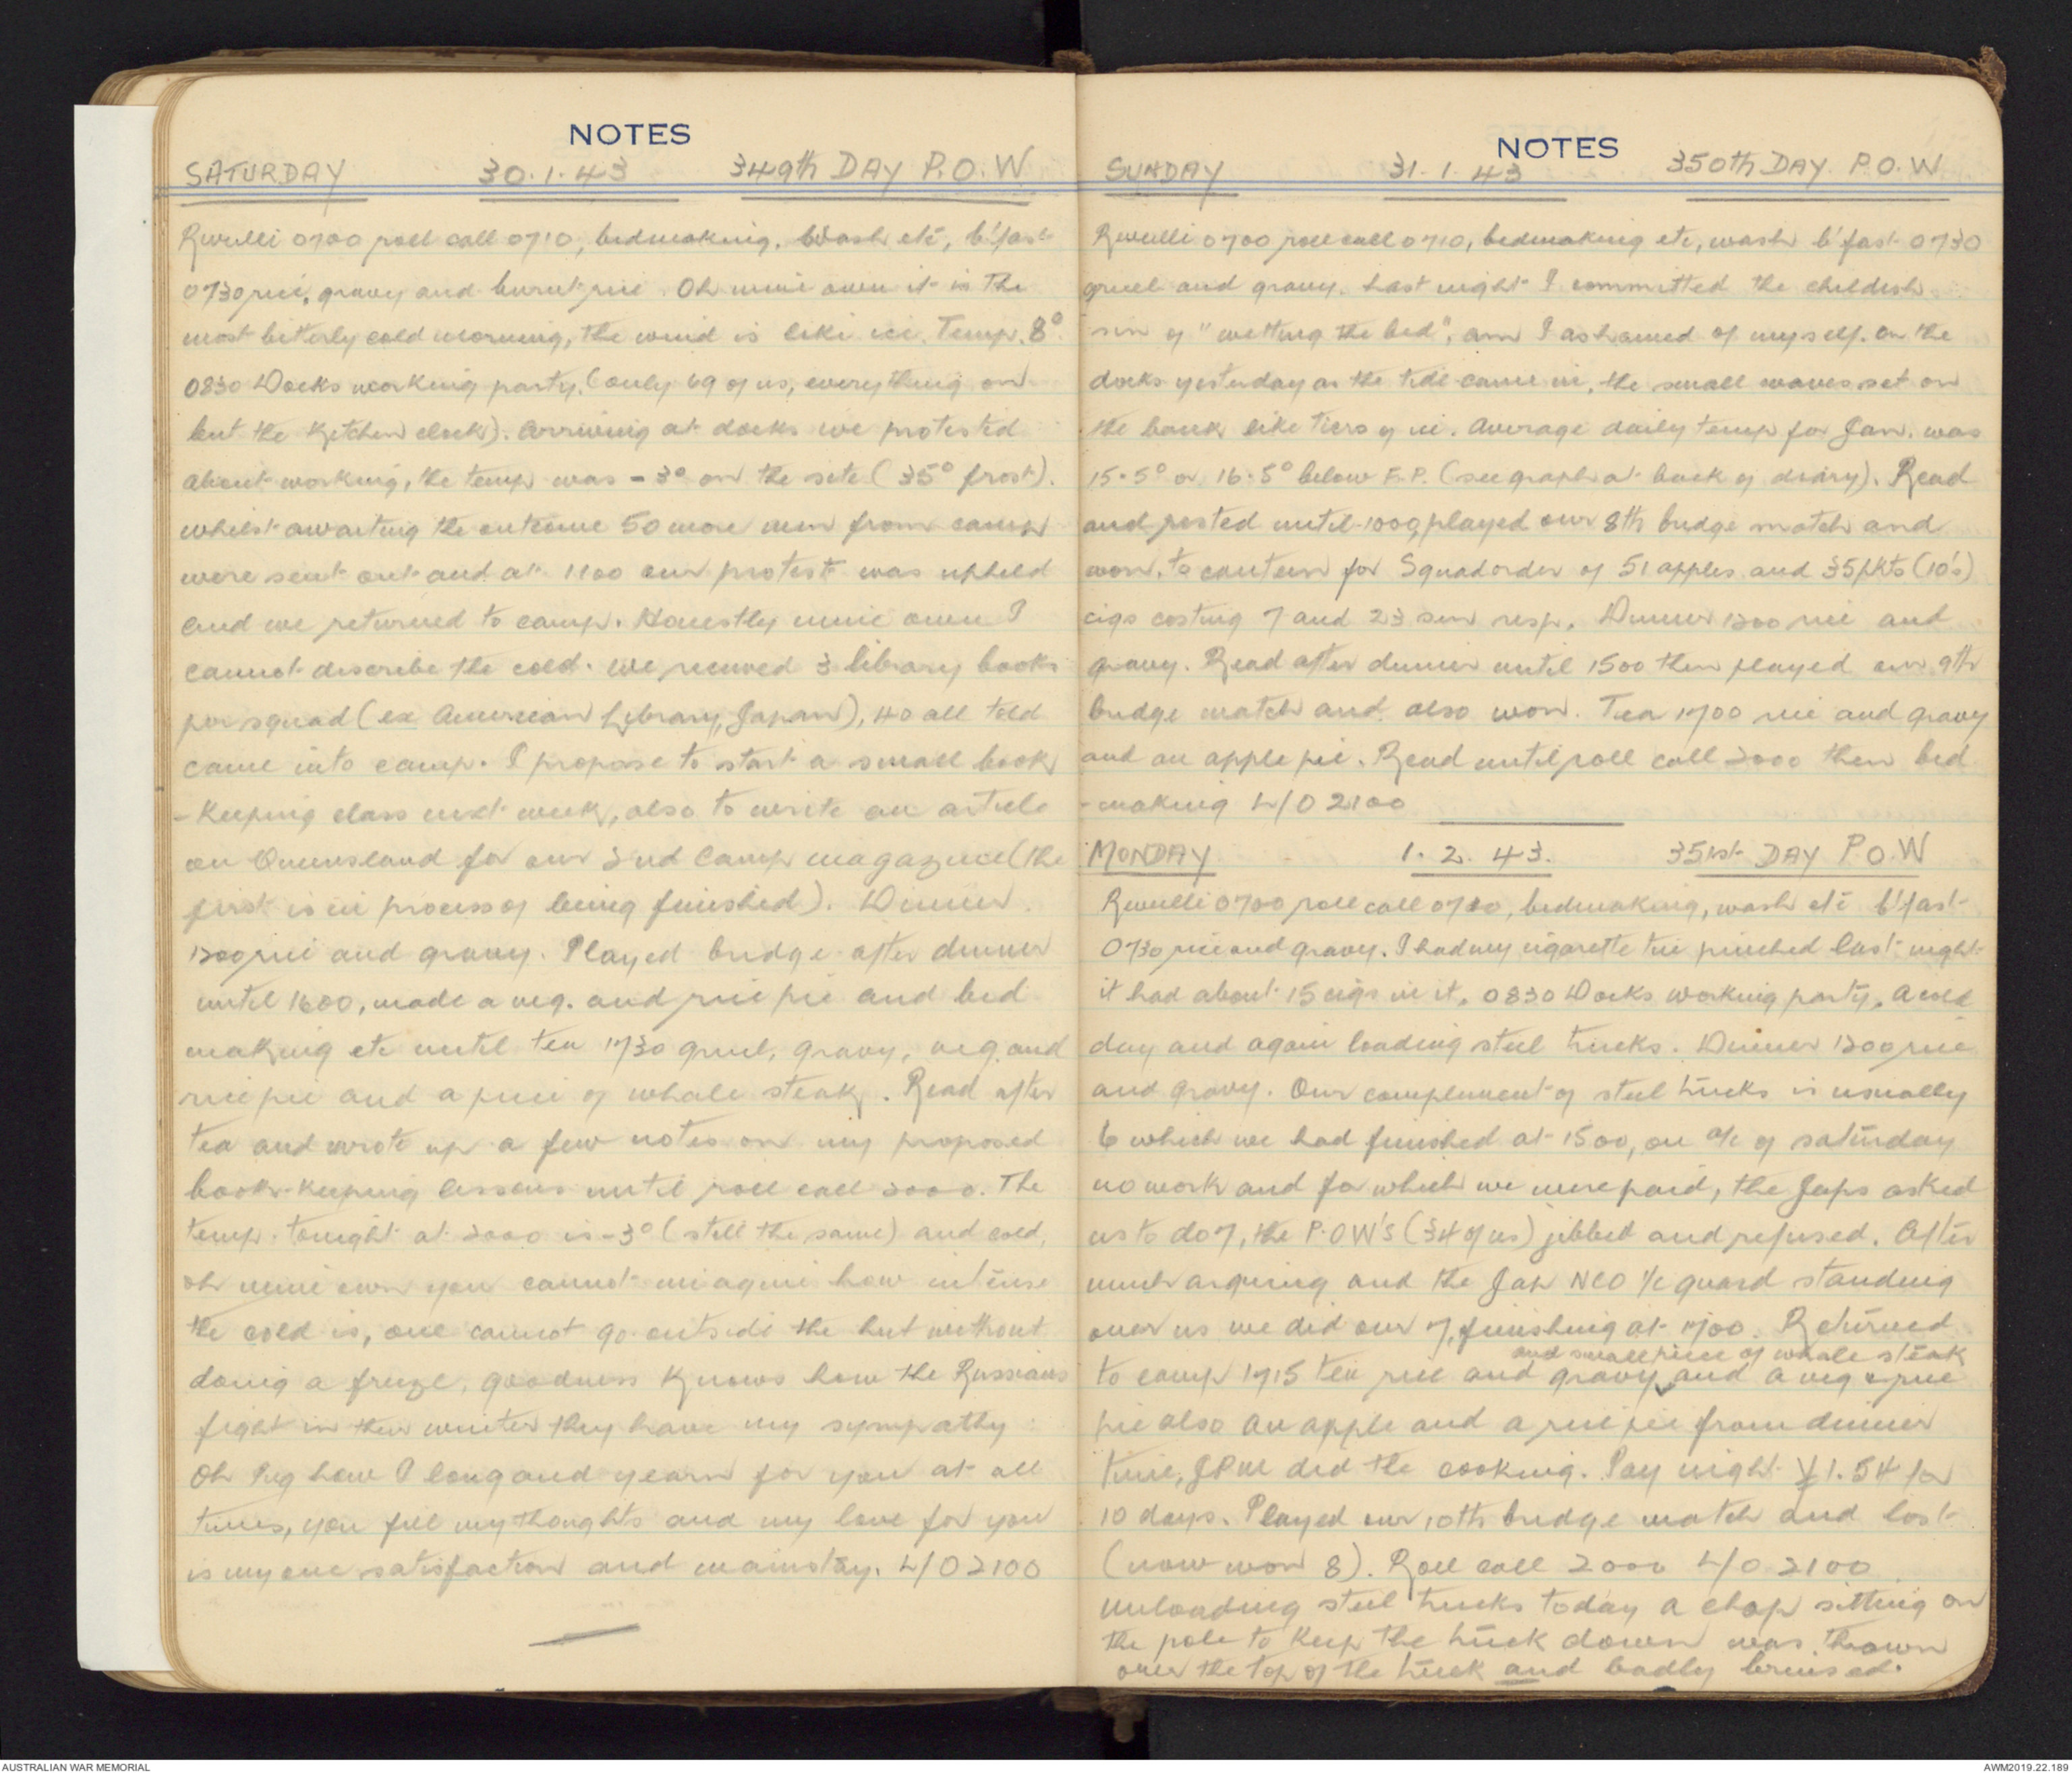 NOTES
SATURDAY 30.1.43 349th DAY P.O.W
Reveille 0700 roll call 0710, bedmaking, Wash etc, b'fast
0730 rice, gravy and burnt rice. Oh mine own it is the
most bitterly cold morning, the wind is like ice. Temp. 8°
0830 Docks working party. (only 69 of us, everything on
but the Kitchen clock). Arriving at docks we protested
about working, the temp was -3° on the site (35° frost).
whilst awaiting the outcome 50 more men from camp
were sent out and at 1100 our protest was upheld
and we returned to camp. Honestly mine own I
cannot describe the cold. We received 3 library books
per squad (ex American Library, Japan), 40 all told
came into camp. I propose to start a small book
-keeping class next week, also to write an article
on Queensland for our 2nd Camp magazine (the
first is in process of being finished). Dinner
1200 rice and gravy. Played bridge after dinner
until 1600, made a veg. and rice pie and bed
making etc until tea 1730 gruel, gravy, veg. and
rice pie and a piece of whale steak. Read after
tea and wrote up a few notes on my proposed
book-keeping lessons until roll call 2000. The
temp. tonight at 2000 is -3° (still the same) and cold,
oh mine own you cannot imagine how intense
the cold is, one cannot go outside the hut without
doing a freeze, goodness knows how the Russians
fight in their winter they have my sympathy
Oh Peg how I long and yearn for you at all
times, you fill my thoughts and my love for you
is my one satisfaction and mainstay. L/O 2100
NOTES
SUNDAY 31.1.43 350th DAY P.O.W
Reveille 0700 roll call 0710, bedmaking etc, wash b'fast 0730
gruel and gravy. Last night I committed the childish
sin of "wetting the bed", am I ashamed of myself. On the
docks yesterday as the tide came in, the small waves set on
the bank like tiers of ice. Average daily temp for Jan. was
15.5° or 16.5° below F.P. (see graph at back of diary). Read
and rested until 1000, played our 8th bridge match and
won, to canteen for Squad order of 51 apples and 35 pkts (10's)
cigs costing 7 and 23 sen resp. Dinner 1200 rice and
gravy. Read after dinner until 1500 then played our 9th
bridge match and also won. Tea 1700 rice and gravy
and an apple pie. Read until roll call 2000 then bed
-making L/O 2100
MONDAY 1.2.43. 351st DAY P.O.W
Reveille 0700 roll call 0710, bedmaking, wash etc b'fast
0730 rice and gravy. I had my cigarette tin pinched last night
it had about 15 cigs in it. 0830 Docks working party. A cold
day and again loading steel trucks. Dinner 1200 rice
and gravy. Our complement of steel trucks is usually
6 which we had finished at 1500, on a/c of saturday
no work and for which we were paid, the Japs asked
us to do 7, the P.O.W's (34 of us) jibbed and refused. After
much arguing and the Jap NCO i/c guard standing
over us we did our 7, finishing at 1700. Returned
and small piece of whale steak
to camp 1715 tea rice and gravy and a veg & rice
pie also an apple and a rice pie from dinner
time, JPM did the cooking. Pay night ¥1.54 for
10 days. Played our 10th bridge match and lost
(now won 8). Roll call 2000 L/O 2100
Unloading steel trucks today a chap sitting on
the pole to keep the truck down was thrown
over the top of the truck and badly bruised.
AUSTRALIAN WAR MEMORIAL
AWM2019.22.189